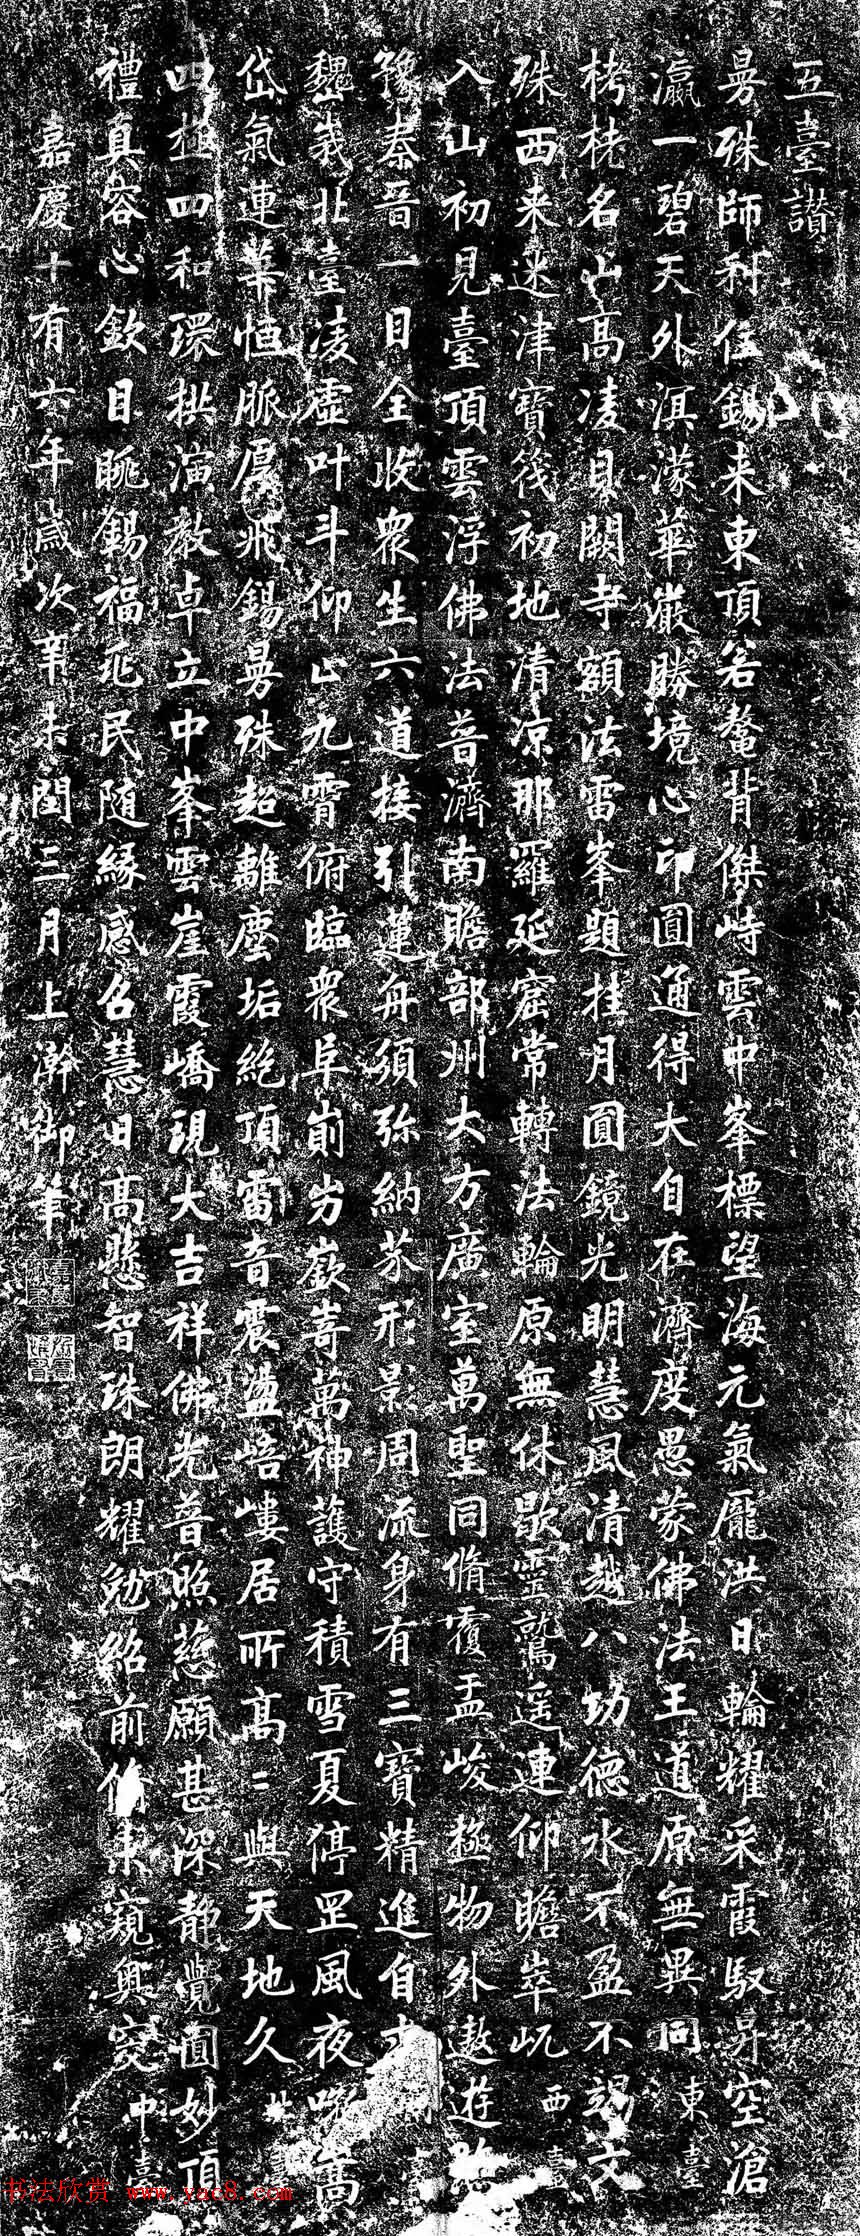 五臺讃
曼殊師利住錫来東頂若鼇背傑峙雲中峯標望海元氣龐洪日輪耀采霞馭昇空滄
瀛一碧天外溟濛華巖勝境心印圓通得大自在濟度愚蒙佛法王道原無異同 東臺
栲栳名山高凌貝闕寺額法雷峯題挂月圓鏡光明慧風清越八功德水不盈不竭文
殊西来迷津寶筏初地清凉那羅延窟常轉法輪原無休歇靈鷲遥連仰瞻崒屼 西臺
入山初見臺頂雲浮佛法普濟南瞻部州大方廣室萬聖同脩覆盂峻極物外遨遊
豫秦晉一日全收衆生六道接引蓮舟須弥納芥形影周流身有三寶精進自
巍峩北臺凌虚叶斗仰止九霄俯臨衆阜崱屴嶔嵜萬神護守積雪夏停罡風夜嵩
岱氣連華恒脈厚飛錫曼殊超離塵垢絶頂雷音震盪嵧嶁居所高〻與天地久 北
四極四和環拱演教卓立中峯雲崖霞嶠現大吉祥佛光普照慈願甚深静覺圓妙頂
禮真容心欽目眺錫福兆民随緣感召慧日高懸智珠朗耀勉紹前脩未窺奥窔 中臺
嘉慶十有六年歲次辛未閏三月上澣御筆
书法欣赏 www.yac8.com